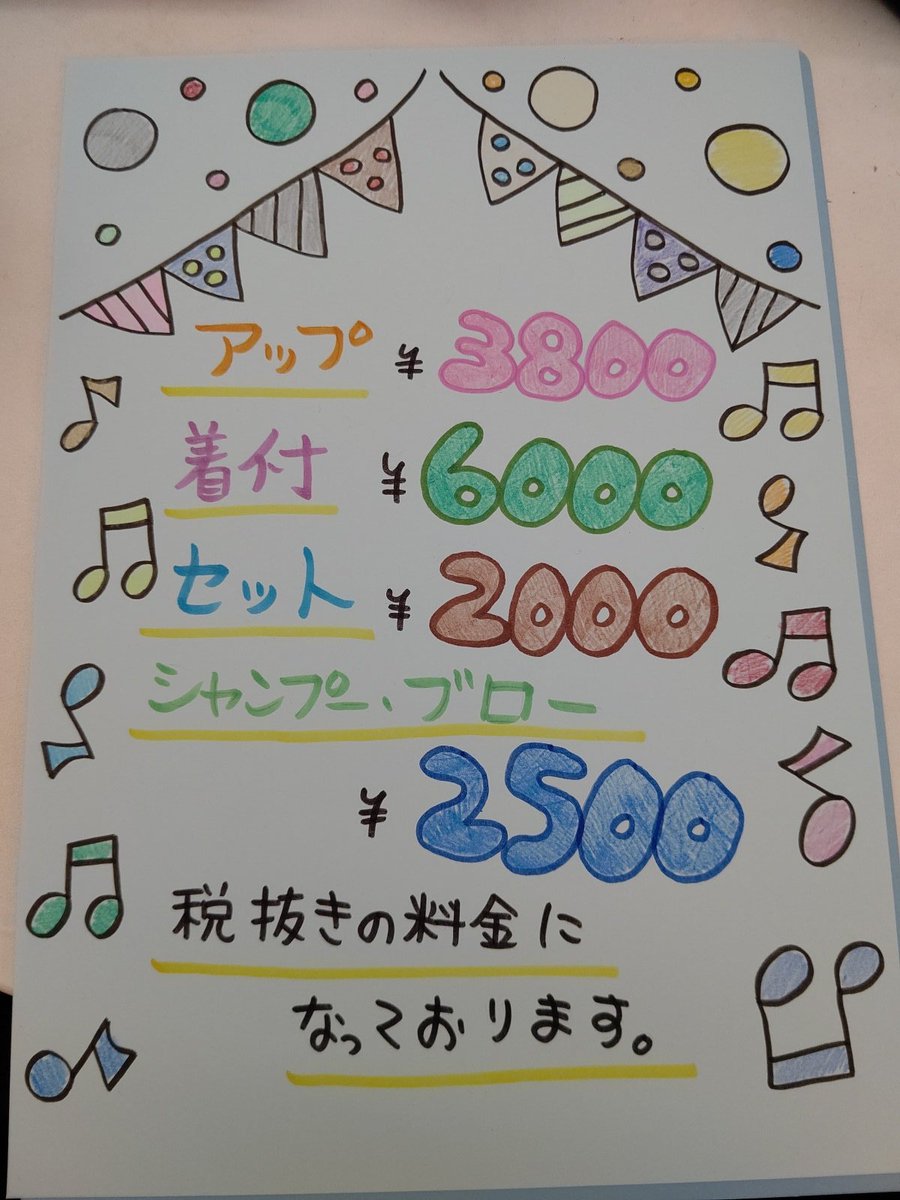 アップ ¥3800
着付 ¥6000
セット ¥2000
シャンプー、ブロー
¥2500
税抜きの料金に
なっております。